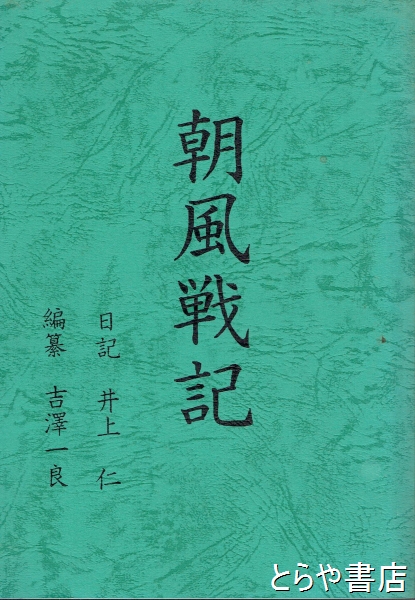 朝風戦記
日記 井上 仁
編纂 吉澤一良
とらや書店